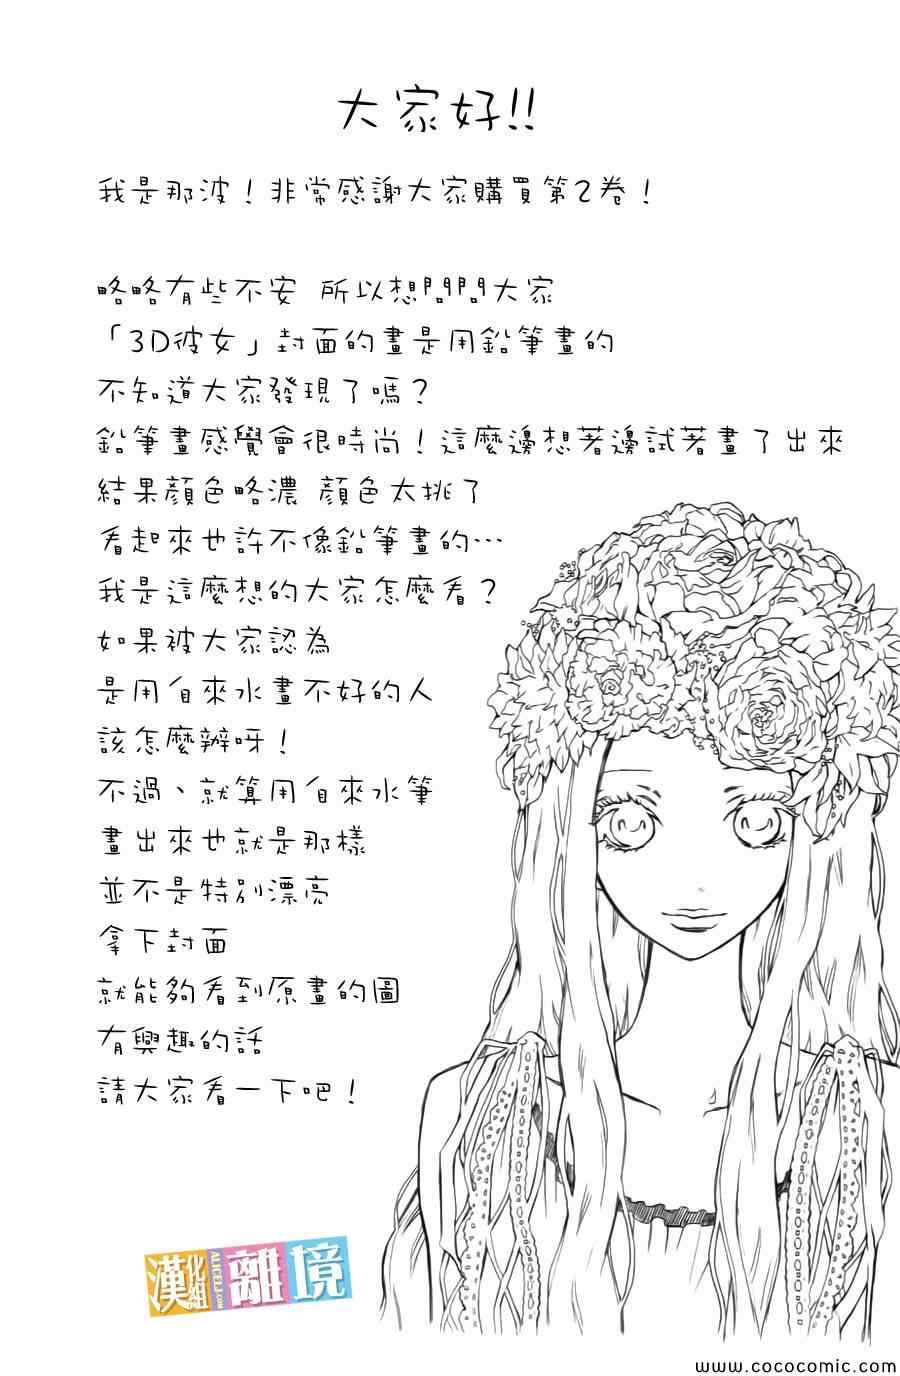 大家好!!
我是那波！非常感謝大家購買第2卷！
略略有些不安 所以想問問大家
「3D彼女」封面的畫是用鉛筆畫的
不知道大家發現了嗎？
鉛筆畫感覺會很時尚！這麼邊想著邊試著畫了出來
結果顏色略濃 顏色太挑了
看起來也許不像鉛筆畫的…
我是這麼想的大家怎麼看？
如果被大家認為
是用自來水畫不好的人
該怎麼辦呀！
不過、就算用自來水筆
畫出來也就是那樣
並不是特別漂亮
拿下封面
就能夠看到原畫的圖
有興趣的話
請大家看一下吧！
漢化組 ALICEIJ.COM 離境
www.cococomic.com